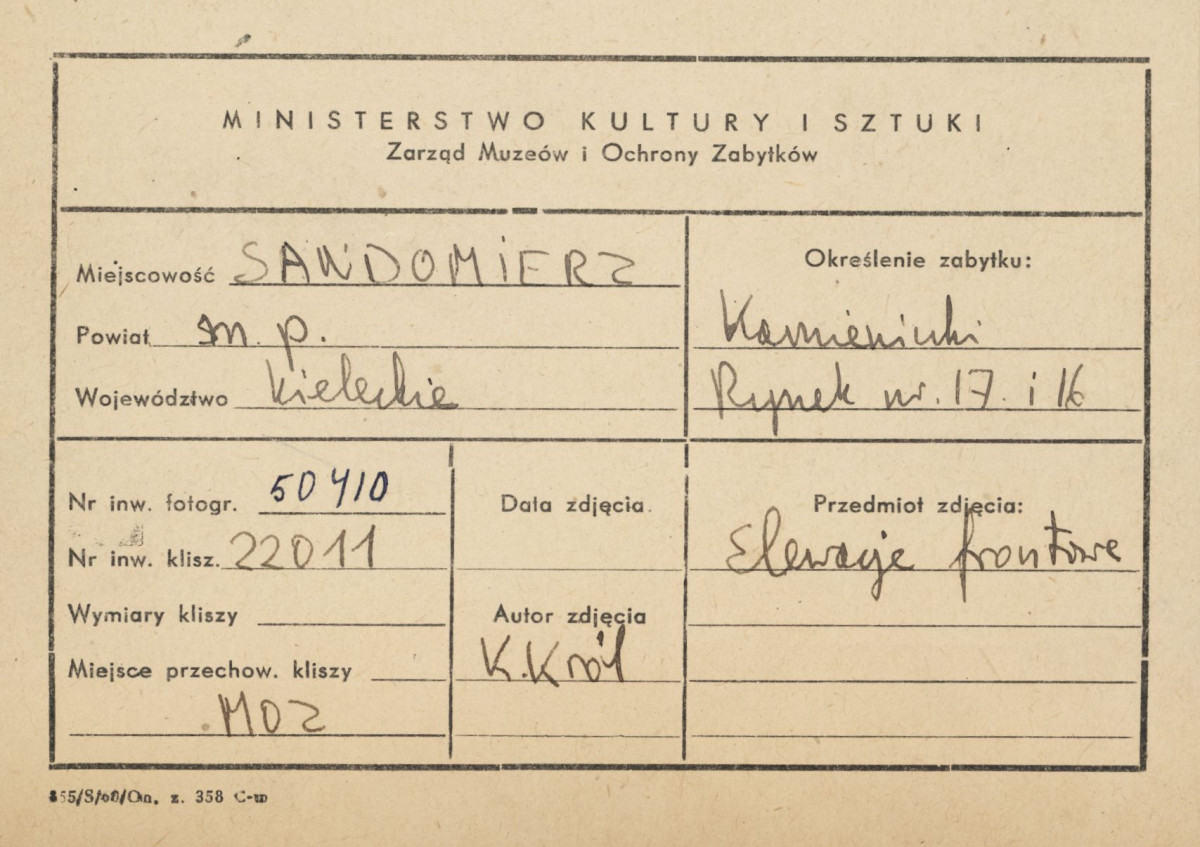 MINISTERSTWO KULTURY I SZTUKI
Zarząd Muzeów i Ochrony Zabytków
Miejscowość SANDOMIERZ
Powiat m. p.
Województwo Kieleckie
Określenie zabytku:
Kamieniczki
Rynek nr. 17. i 16
Nr inw. fotogr. 50410
Nr inw. klisz. 22011
Wymiary kliszy
Miejsce przechow. kliszy
MOZ
Data zdjęcia
Autor zdjęcia
K. Król
Przedmiot zdjęcia:
Elewacje frontowe
z. 358